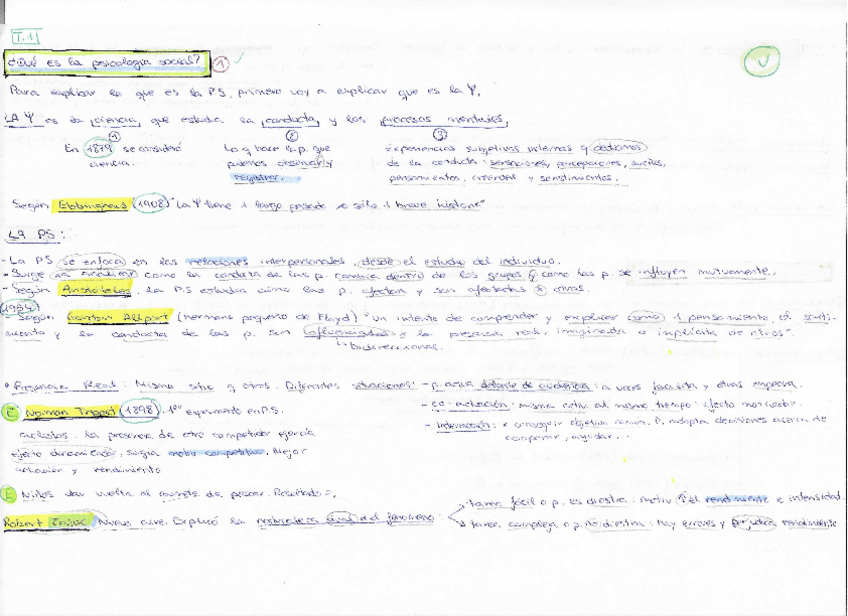 T.1
¿Qué es la psicología social? 1
Para explicar lo que es la PS, primero voy a explicar que es la Ψ.
LA Ψ es la ciencia, que estudia la conducta, y los procesos mentales,
① ② ③
En 1879 se consideró ciencia.
Lo q hace la p. que podemos observar y registrar.
Experiencias subjetivas internas q deducimos de la conducta: sensaciones, percepciones, sueños, pensamientos, creencias y sentimientos.
Según Ebbinghaus (1908) "La Ψ tiene 1 largo pasado y sólo 1 breve historia"
LA PS:
- La PS se enfoca en las relaciones interpersonales, desde el estudio del individuo.
- Surge para analizar como la conducta de las p. cambia dentro de los grupos y como las p. se influyen mutuamente.
- Según Aristóteles, la P.S estudia cómo las p. afectan y son afectadas x otras.
(1954)
Según Gordon Allport (hermano pequeño de Floyd) "un intento de comprender y explicar como el pensamiento, el senti-
miento y la conducta de las p. son influenciados x la presencia real, imaginada o implícita de otros".
bidireccional.
• Presencia Real: Mismo sitio q otros. Diferentes situaciones: - p. actúa delante de audiencia: a veces facilita y otras empeora.
E Norman Triplett (1898). 1er experimento en P.S.
- co-actuación: misma activ. al mismo tiempo: efecto motivador.
ciclistas. la presencia de otro competidor ejercía
- Interacción: x conseguir objetivo común. P. adopta decisiones acerca de
efecto dinamizador, surgía motiv competitiva. Mejor
cooperar, ayudar...
actuación y rendimiento
E Niños dar vuelta al carrete de pescar. Resultado =.
Robert Zajonc Nuevo aire. Explicó la naturaleza dual del fenómeno
tarea fácil o p. es diestra: motiv ↑ el rendimiento e intensidad.
tarea compleja o p. no diestra: Hay errores y perjudica rendimiento